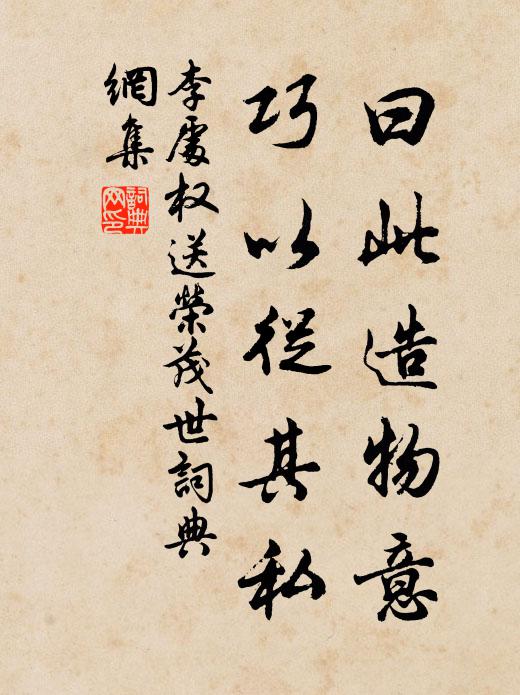 曰此造物意
巧以從其私
李處权送榮茂世詞典
網集
詞典
网印